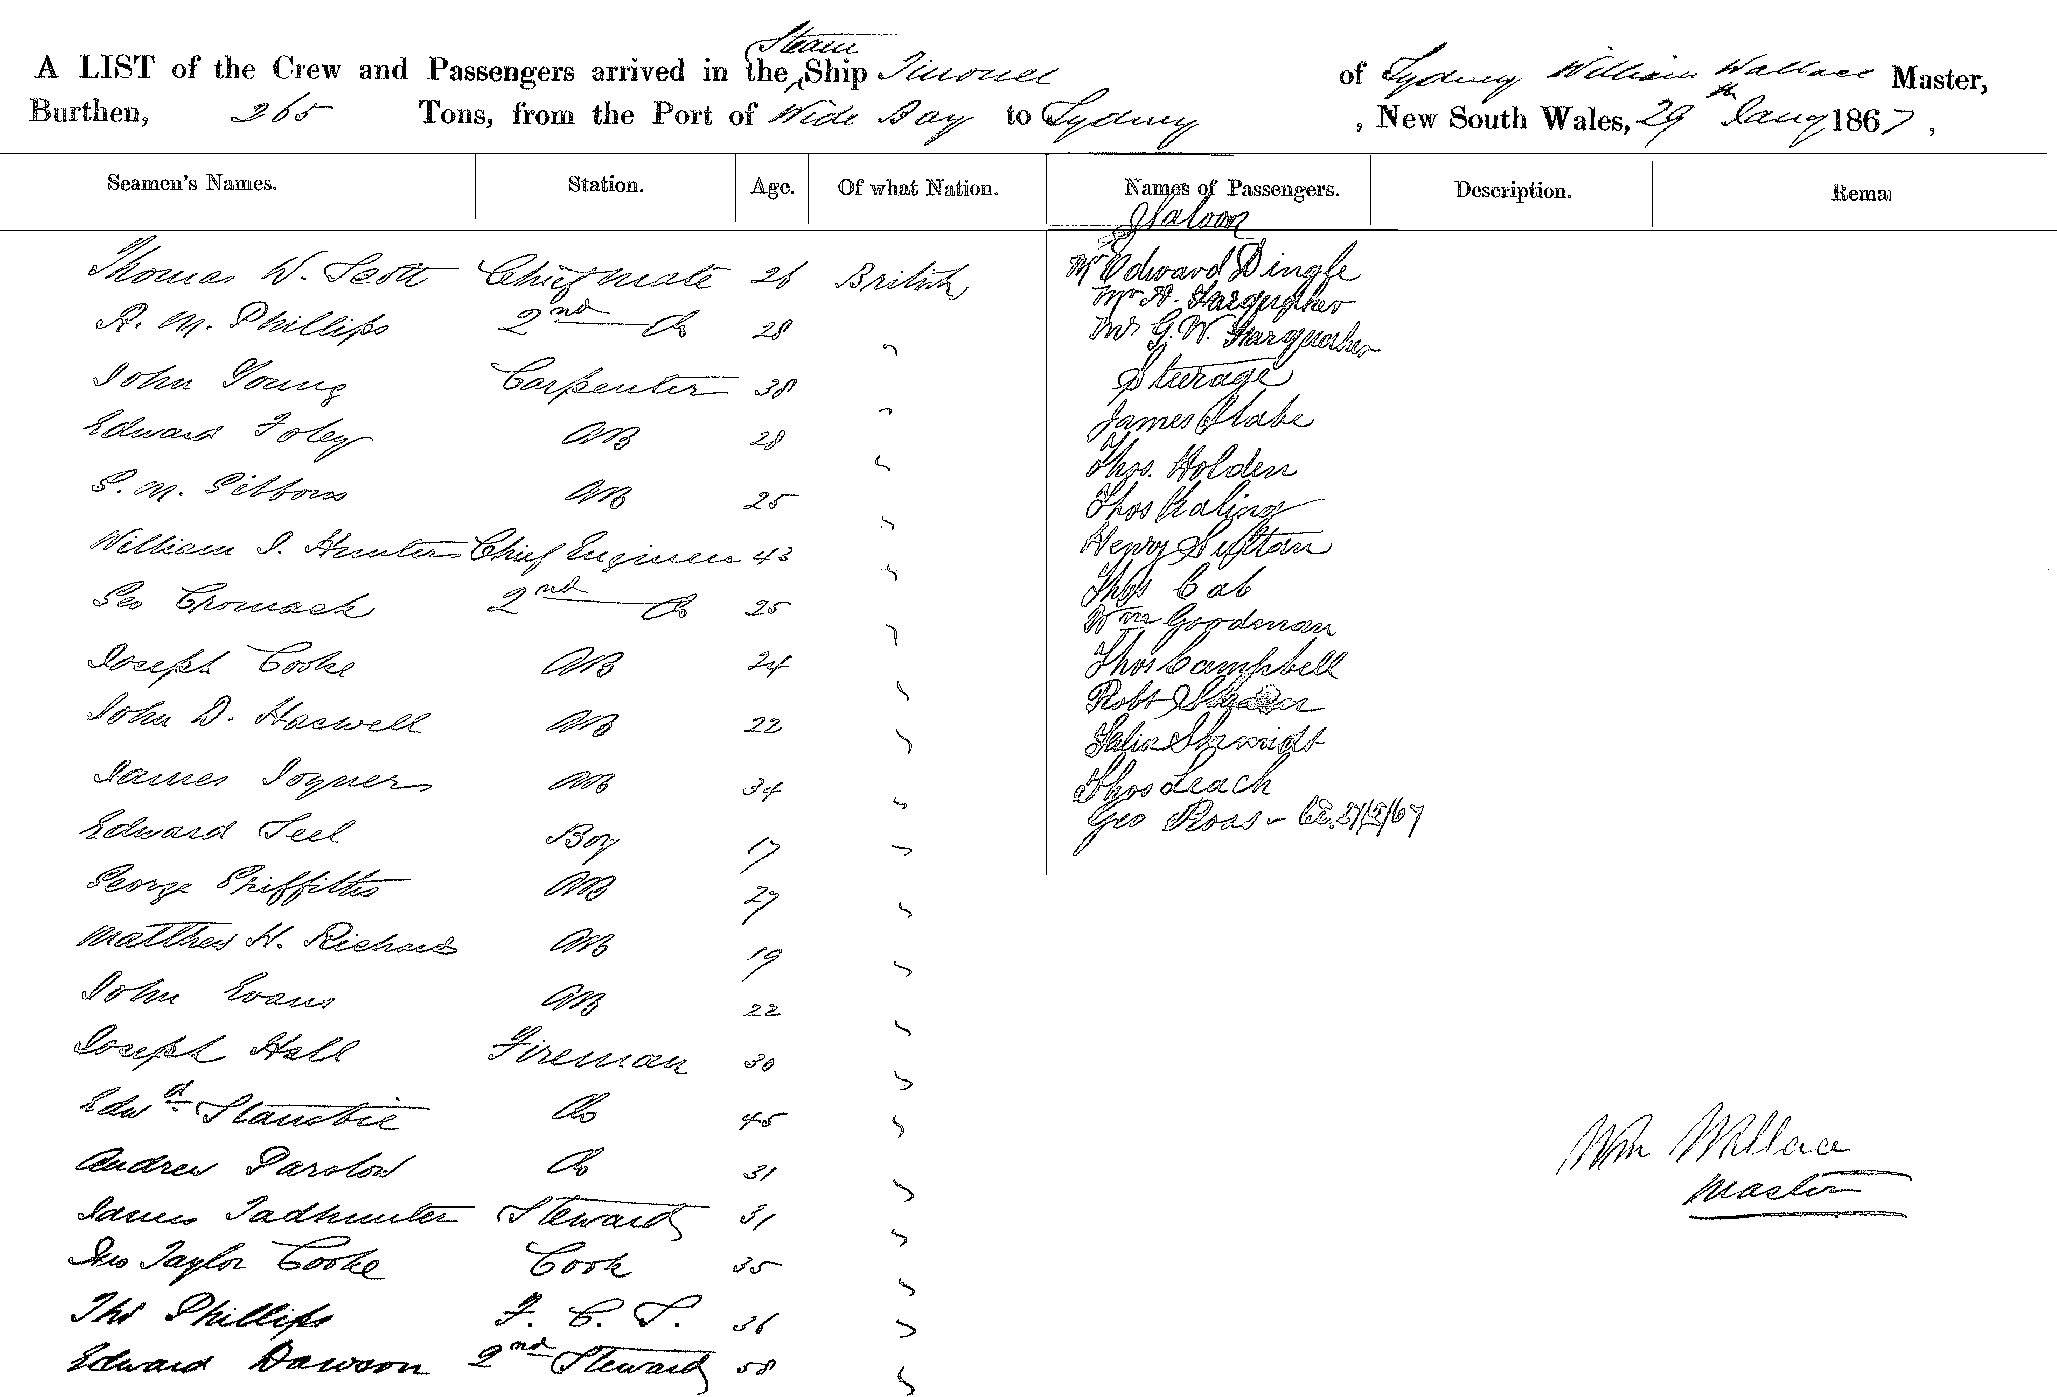 Steam
A LIST of the Crew and Passengers arrived in the Ship of Sydney William Wallace Master,
Burthen, 265 Tons, from the Port of Wide Bay to Sydney, New South Wales, 29th Jany 1867,
Seamen's Names. Station. Age. Of what Nation. Names of Passengers. Description. Remar
Saloon
Thomas W. Scott Chief mate 26 British
R. M. Phillips 2nd Do 28 "
John Young Carpenter 38 "
Edward Foley AB 28 "
S. M. Gibbons AB 25 "
William I. Hunter Chief Engineer 43 "
Geo Cromack 2nd Do 25 "
Joseph Cooke AB 24 "
John D. Haswell AB 22 "
James Joyner AB 34 "
Edward Teel Boy 17 "
George Griffiths AB 27 "
Matthew H. Richards AB 19 "
John Evans AB 22 "
Joseph Hall Fireman 30 "
Edwd Stansbie Do 45 "
Andrew Parslow Do 31 "
James Tadhunter Steward 31 "
Jno Taylor Cooke Cook 35 "
Thos Phillips F. C. S. 36 "
Edward Dawson 2nd Steward 58 "
Mr Edward Dingle
Mr A. Farquhar
Mr G. W. Farquhar
Steerage
James
Thos. Holden
Thos
Henry
Thos Cab
Wm Goodman
Thos Campbell
Robt
Shmidt
Thos Leach
Geo Roas -
Wm Wallace
Master